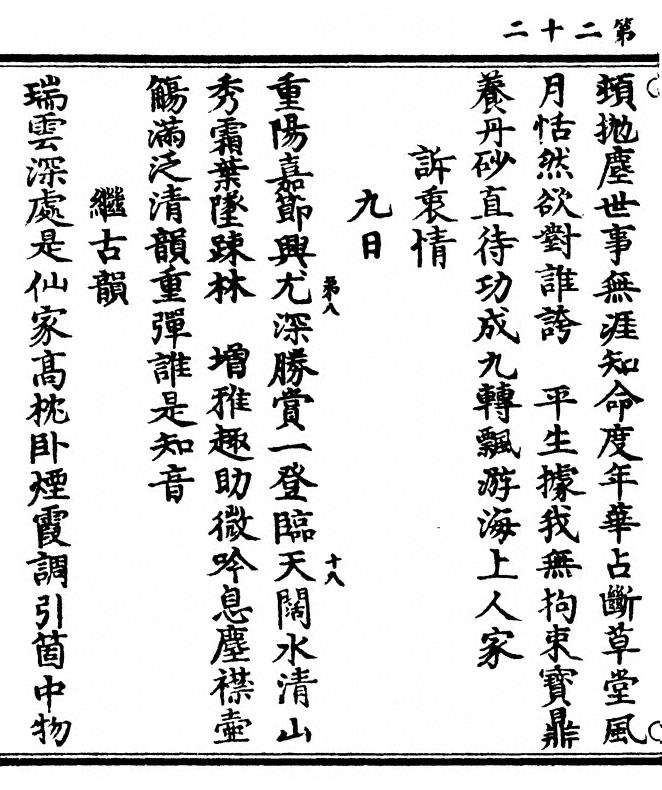 第二十二
頻抛塵世事無涯知命度年華占斷草堂風
月恬然欲對誰誇　平生據我無拘束寶鼎
養丹砂直待功成九轉飄游海上人家
訴衷情
九日
重陽嘉節興尤深勝賞一登臨天闊水清山
第八
十八
秀霜葉墜踈林　增雅趣助微吟息塵襟壺
觴滿泛清韻重彈誰是知音
繼古韻
瑞雲深處是仙家高枕卧煙霞調引箇中物